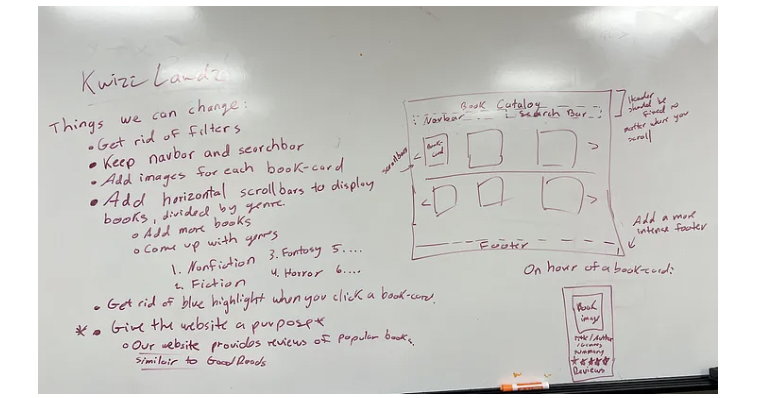 Kwizi Landz
Things we can change:
• Get rid of filters
• Keep navbar and searchbar
• Add images for each book-card
• Add horizontal scrollbars to display
books, divided by genre.
o Add more books
o Come up with genres
1. Nonfiction 3. Fantasy 5. ...
2. Fiction 4. Horror 6. ...
• Get rid of blue highlight when you click a book-card.
* • Give the website a purpose *
o Our website provides reviews of popular books.
similair to GoodReads
Book Catalog
Navbar Search Bar
Book-
card
scrollbar
Footer
Header
should be
fixed no
matter where you
scroll
Add a more
intense footer
On hover of a book-card:
Book
image
Title/Author
/Genres
summary
★★★★★
Reviews